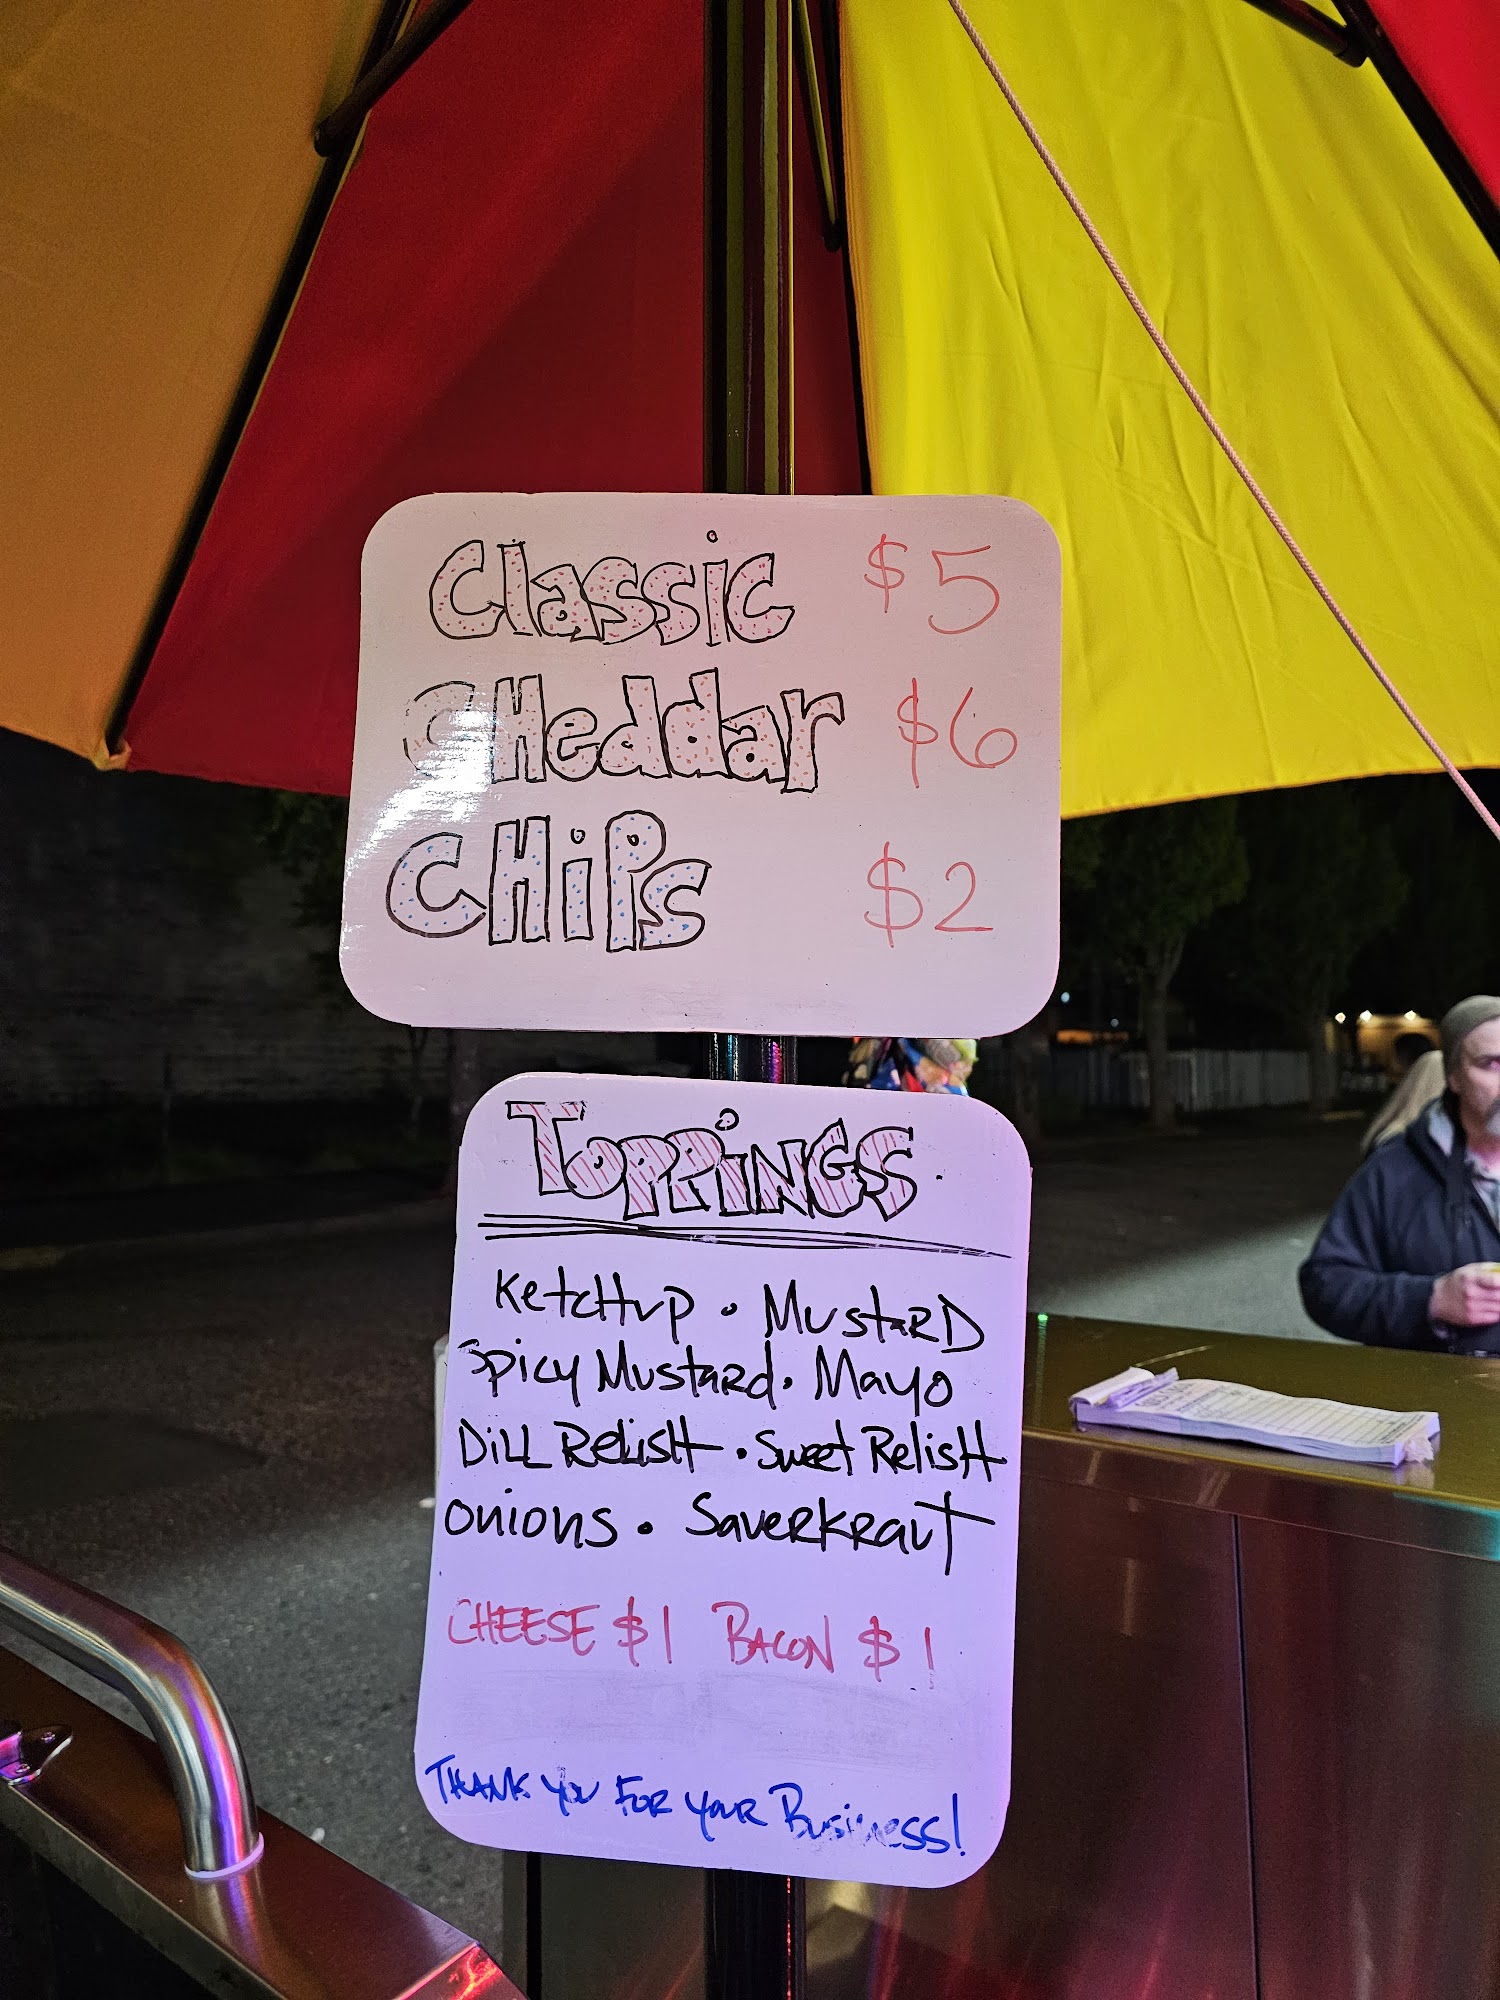 Classic $5
CHeddar $6
CHiPs $2
TOPPiNGS
KetcHup • MustaRD
Spicy Mustard • Mayo
DiLL RelisH • Sweet RelisH
Onions • SauerKraut
CHEESE $1 BACON $1
THANK you FOR your Business!